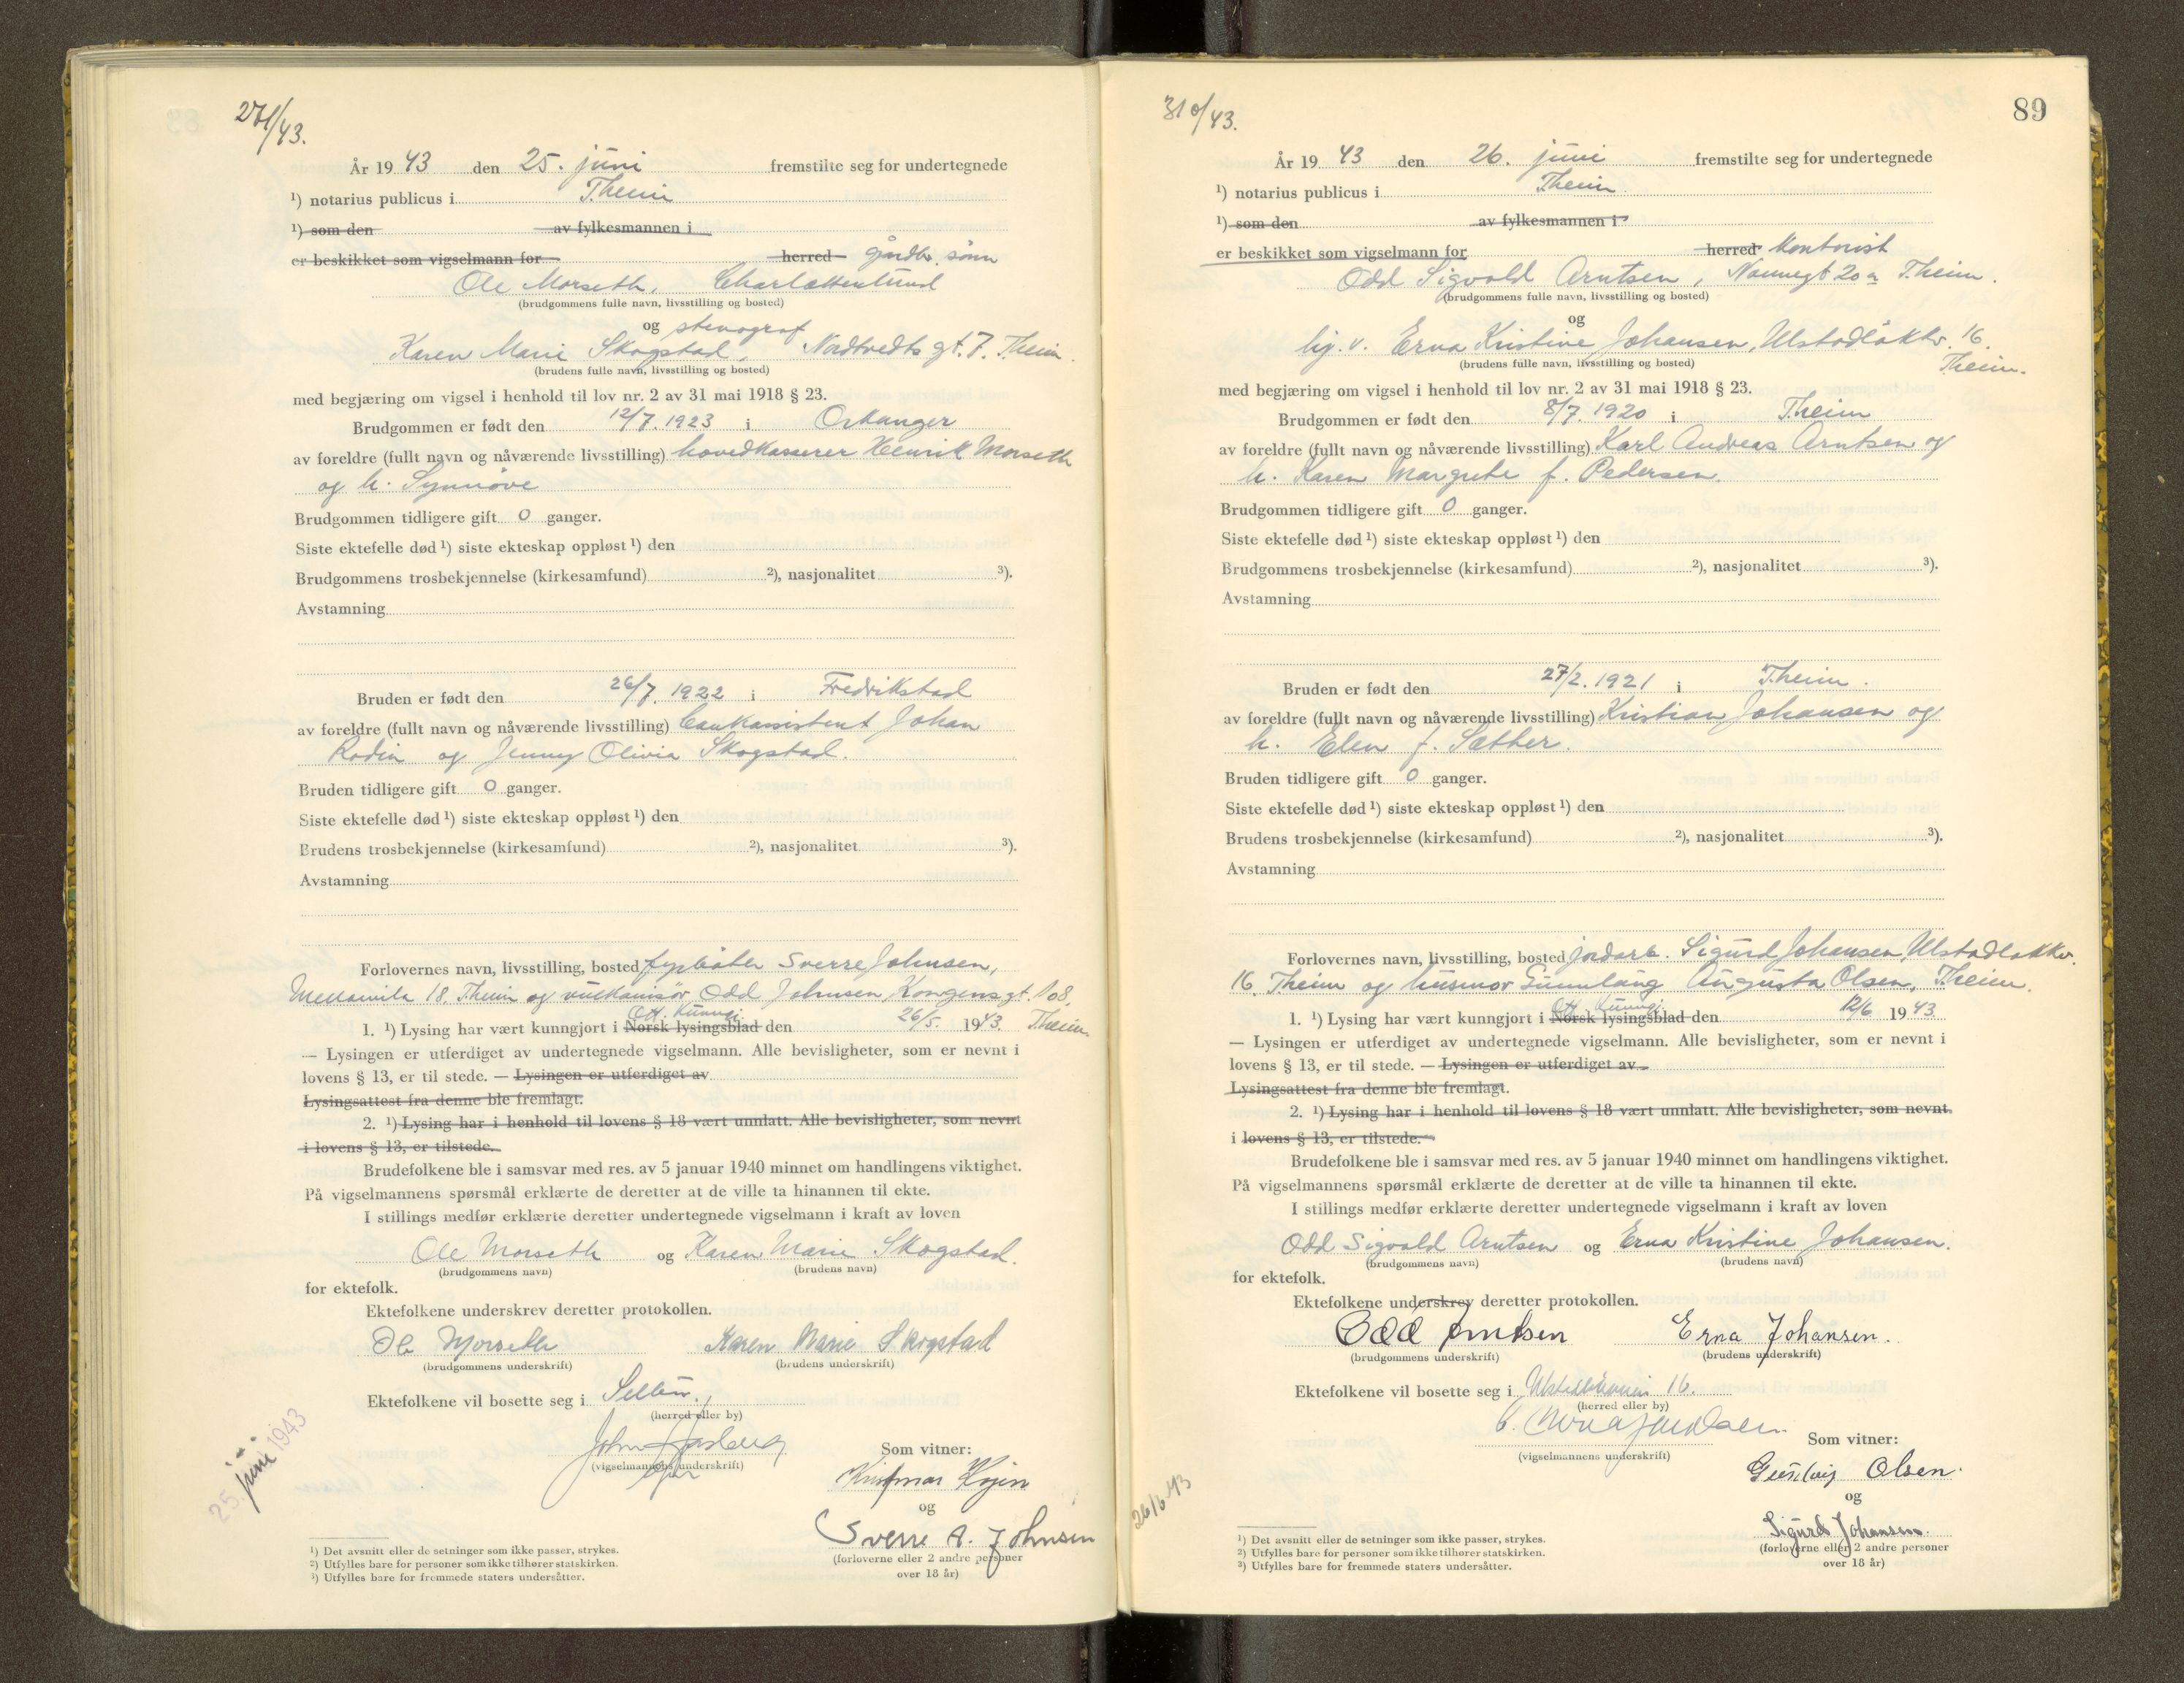 271/43.
År 1943 den 25. juni fremstilte seg for undertegnede
¹) notarius publicus i T.heim
¹) som den av fylkesmannen i
er beskikket som vigselmann for herred gårdbr. sønn
Ole Morseth, Charlottenlund
(brudgommens fulle navn, livsstilling og bosted)
og stenograf
Karen Marie Skogstad, Nordtvedts gt. 7. T.heim.
(brudens fulle navn, livsstilling og bosted)
med begjæring om vigsel i henhold til lov nr. 2 av 31 mai 1918 § 23.
Brudgommen er født den 12/7. 1923 i Orkanger
av foreldre (fullt navn og nåværende livsstilling) hovedkasserer Henrik Morseth
og h. Synnøve
Brudgommen tidligere gift 0 ganger.
Siste ektefelle død ¹) siste ekteskap oppløst ¹) den
Brudgommens trosbekjennelse (kirkesamfund) ²), nasjonalitet ³).
Avstamning
Bruden er født den 26/7. 1922 i Fredrikstad
av foreldre (fullt navn og nåværende livsstilling) bankassistent Johan
Rodin og Jenny Olivia Skogstad.
Bruden tidligere gift 0 ganger.
Siste ektefelle død ¹) siste ekteskap oppløst ¹) den
Brudens trosbekjennelse (kirkesamfund) ²), nasjonalitet ³).
Avstamning
Forlovernes navn, livsstilling, bosted fyrbøter Sverre Johnsen,
Mellomila 18. T.heim og vulkanisør Odd Johnsen Kongens gt. 108.
Off. kunngj.
1. ¹) Lysing har vært kunngjort i Norsk lysingsblad den 26/5. 1943. T.heim
— Lysingen er utferdiget av undertegnede vigselmann. Alle bevisligheter, som er nevnt i
lovens § 13, er til stede. — Lysingen er utferdiget av
Lysingsattest fra denne ble fremlagt.
2. ¹) Lysing har i henhold til lovens § 18 vært unnlatt. Alle bevisligheter, som nevnt
i lovens § 13, er tilstede.
Brudefolkene ble i samsvar med res. av 5 januar 1940 minnet om handlingens viktighet.
På vigselmannens spørsmål erklærte de deretter at de ville ta hinannen til ekte.
I stillings medfør erklærte deretter undertegnede vigselmann i kraft av loven
Ole Morseth og Karen Marie Skogstad.
(brudgommens navn) (brudens navn)
for ektefolk.
Ektefolkene underskrev deretter protokollen.
Ole Morseth Karen Marie Skogstad
(brudgommens underskrift) (brudens underskrift)
Ektefolkene vil bosette seg i
(herred eller by)
(vigselmannens underskrift)
Som vitner:
og
Sverre A. Johnsen
(forloverne eller 2 andre personer
over 18 år)
25. juni 1943
¹) Det avsnitt eller de setninger som ikke passer, strykes.
²) Utfylles bare for personer som ikke tilhører statskirken.
³) Utfylles bare for fremmede staters undersåtter.
310/43.
89
År 1943 den 26. juni fremstilte seg for undertegnede
¹) notarius publicus i T.heim.
¹) som den av fylkesmannen i
er beskikket som vigselmann for herred kontorist
Odd Sigvald Arntsen, Nonnegt 20a T.heim.
(brudgommens fulle navn, livsstilling og bosted)
og
hj. v. Erna Kristine Johansen, Ulstadløkkv. 16.
T.heim.
(brudens fulle navn, livsstilling og bosted)
med begjæring om vigsel i henhold til lov nr. 2 av 31 mai 1918 § 23.
Brudgommen er født den 8/7. 1920 i T.heim
av foreldre (fullt navn og nåværende livsstilling) Karl Andreas Arntsen og
h. Karen Margrete f. Pedersen.
Brudgommen tidligere gift 0 ganger.
Siste ektefelle død ¹) siste ekteskap oppløst ¹) den
Brudgommens trosbekjennelse (kirkesamfund) ²), nasjonalitet ³).
Avstamning
Bruden er født den 27/2. 1921 i T.heim.
av foreldre (fullt navn og nåværende livsstilling) Kristian Johansen og
h. Elen f. Sæther.
Bruden tidligere gift 0 ganger.
Siste ektefelle død ¹) siste ekteskap oppløst ¹) den
Brudens trosbekjennelse (kirkesamfund) ²), nasjonalitet ³).
Avstamning
Forlovernes navn, livsstilling, bosted jordarb. Sigurd Johansen, Ulstadløkkv.
16. T.heim og husmor Gunnlaug Augusta Olsen, T.heim.
Off. kunngj.
1. ¹) Lysing har vært kunngjort i Norsk lysingsblad den 12/6 1943
— Lysingen er utferdiget av undertegnede vigselmann. Alle bevisligheter, som er nevnt i
lovens § 13, er til stede. — Lysingen er utferdiget av
Lysingsattest fra denne ble fremlagt.
2. ¹) Lysing har i henhold til lovens § 18 vært unnlatt. Alle bevisligheter, som nevnt
i lovens § 13, er tilstede.
Brudefolkene ble i samsvar med res. av 5 januar 1940 minnet om handlingens viktighet.
På vigselmannens spørsmål erklærte de deretter at de ville ta hinannen til ekte.
I stillings medfør erklærte deretter undertegnede vigselmann i kraft av loven
Odd Sigvald Arntsen og Erna Kristine Johansen.
(brudgommens navn) (brudens navn)
for ektefolk.
Ektefolkene underskrev deretter protokollen.
Odd Arntsen Erna Johansen.
(brudgommens underskrift) (brudens underskrift)
Ektefolkene vil bosette seg i Ulstadløkveien 16.
(herred eller by)
(vigselmannens underskrift)
Som vitner:
Olsen.
og
Sigurd Johansen.
(forloverne eller 2 andre personer
over 18 år)
26/6 43
¹) Det avsnitt eller de setninger som ikke passer, strykes.
²) Utfylles bare for personer som ikke tilhører statskirken.
³) Utfylles bare for fremmede staters undersåtter.